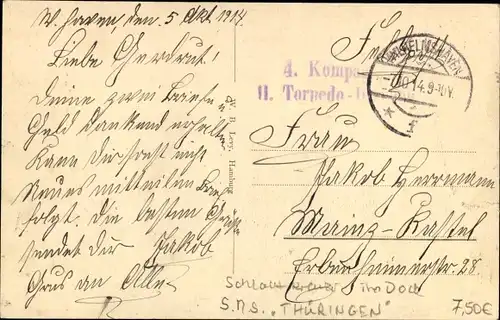 W. haven, den. 5 Okt. 1914.
Liebe Gerdrut!
Deine zwei Briefe u
Geld Dankend erhalten
Kann Dir sonst nicht
Neues mitteilen Brief
folgt. Die besten Grüße
sendet dir Jakob
Grus an Alle.
W. B. Levy, Hamburg
4. Komp
II. Torpedo-
WILHELMSHAVEN
10.14.9-10V.
Frau
Jakob Herrmann
Mainz-Kastel
Erbenheimerstr. 28.
im Dock
S.M.S. "THÜRINGEN"
7,50€